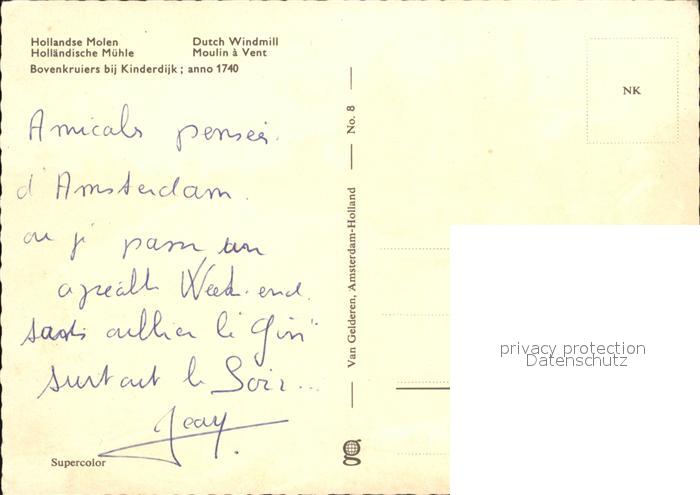 Hollandse Molen
Dutch Windmill
Holländische Mühle
Moulin à Vent
Bovenkruiers bij Kinderdijk ; anno 1740
Amicales pensées
d'Amsterdam.
ou je passe un
agréable Week-end.
sans oublier le "Gin"
surtout le Soir...
Jeay
Supercolor
Van Gelderen, Amsterdam-Holland
No. 8
NK
privacy protection
Datenschutz